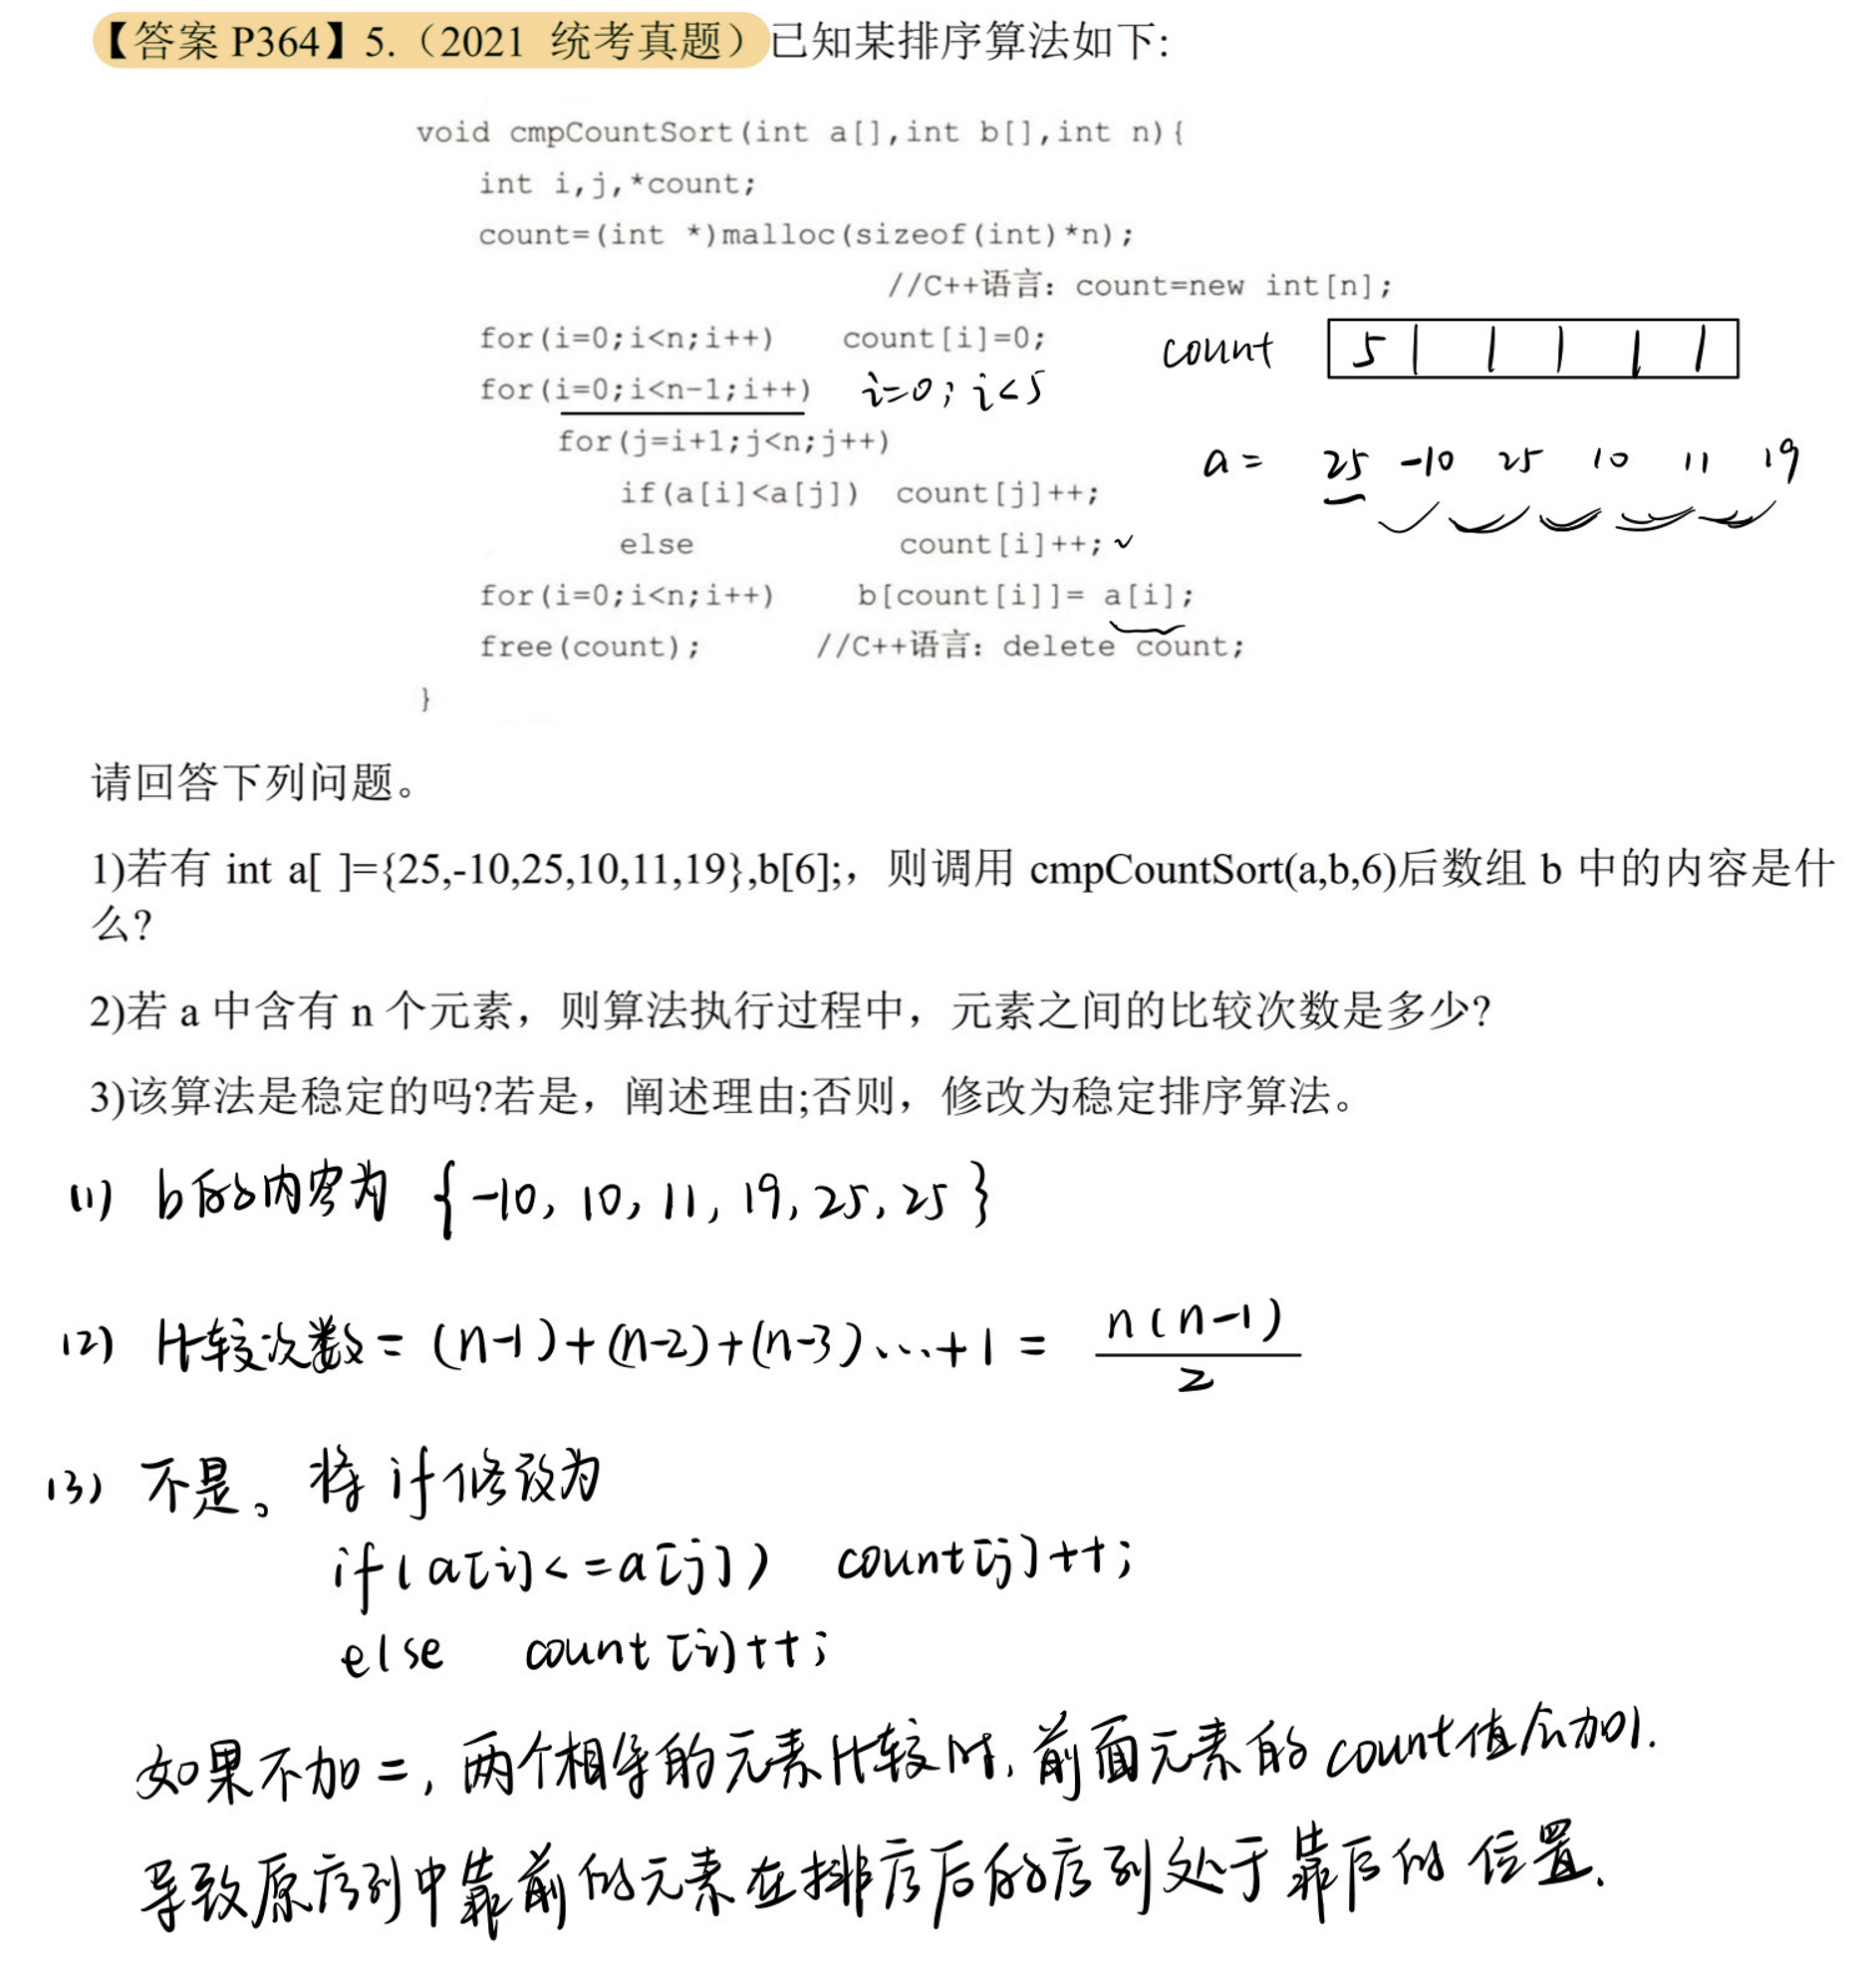 【答案 P364】5.（2021 统考真题）已知某排序算法如下:
void cmpCountSort(int a[],int b[],int n){
int i,j,*count;
count=(int *)malloc(sizeof(int)*n);
//C++语言：count=new int[n];
for(i=0;i<n;i++) count[i]=0;
count 5
for(i=0;i<n-1;i++) i=0; i<5
for(j=i+1;j<n;j++)
a= 25 -10 25 10 11 19
if(a[i]<a[j]) count[j]++;
else count[i]++;
for(i=0;i<n;i++) b[count[i]]= a[i];
free(count); //C++语言：delete count;
}
请回答下列问题。
1)若有 int a[ ]={25,-10,25,10,11,19},b[6];，则调用 cmpCountSort(a,b,6)后数组 b 中的内容是什
么?
2)若 a 中含有 n 个元素，则算法执行过程中，元素之间的比较次数是多少?
3)该算法是稳定的吗?若是，阐述理由;否则，修改为稳定排序算法。
(1) b的内容为 {-10, 10, 11, 19, 25, 25}
(2) 比较次数= (n-1)+(n-2)+(n-3)...+1 = n(n-1)/2
(3) 不是。将 if 修改为
if(a[i]<=a[j]) count[j]++;
else count[i]++;
如果不加=, 两个相等的元素比较时, 前面元素的count值会加1.
导致原序列中靠前的元素在排序后的序列处于靠后的位置.